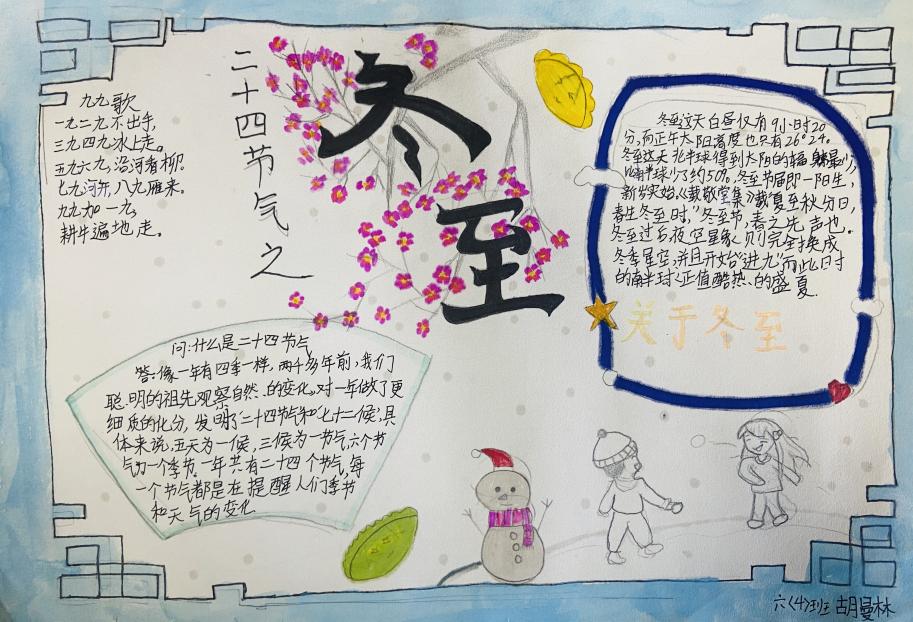 二十四节气之
冬至
九九歌
一九二九不出手，
三九四九冰上走。
五九六九，沿河看柳。
七九河开，八九雁来。
九九加一九，
耕牛遍地走。
冬至这天白昼仅有9小时20
分，而正午太阳高度也只有26°24。
冬至这天北半球得到太阳的辐射最少，
比南半球少了约50%。冬至节届即一阳生，
新岁突始，《载敬堂集》载夏至秋分日，
春生冬至时，"冬至节，春之先声也。
冬至过后，夜空星象，则完全换成
冬季星空，并且开始"进九"而此日时
的南半球正值酷热、的盛夏
关于冬至
问：什么是二十四节气
答：像一年有四季一样，两千多年前，我们
聪、明的祖先观察自然、的变化。对一年做了更
细质的化分，发明了"二十四节气和"七十二候"具
体来说，五天为一候，三候为一节气，六个节
气为一个季节，一年共有二十四个节气，每
一个节气都是在提醒人们季节
和天气的变化
六〈4〉班 胡曼林